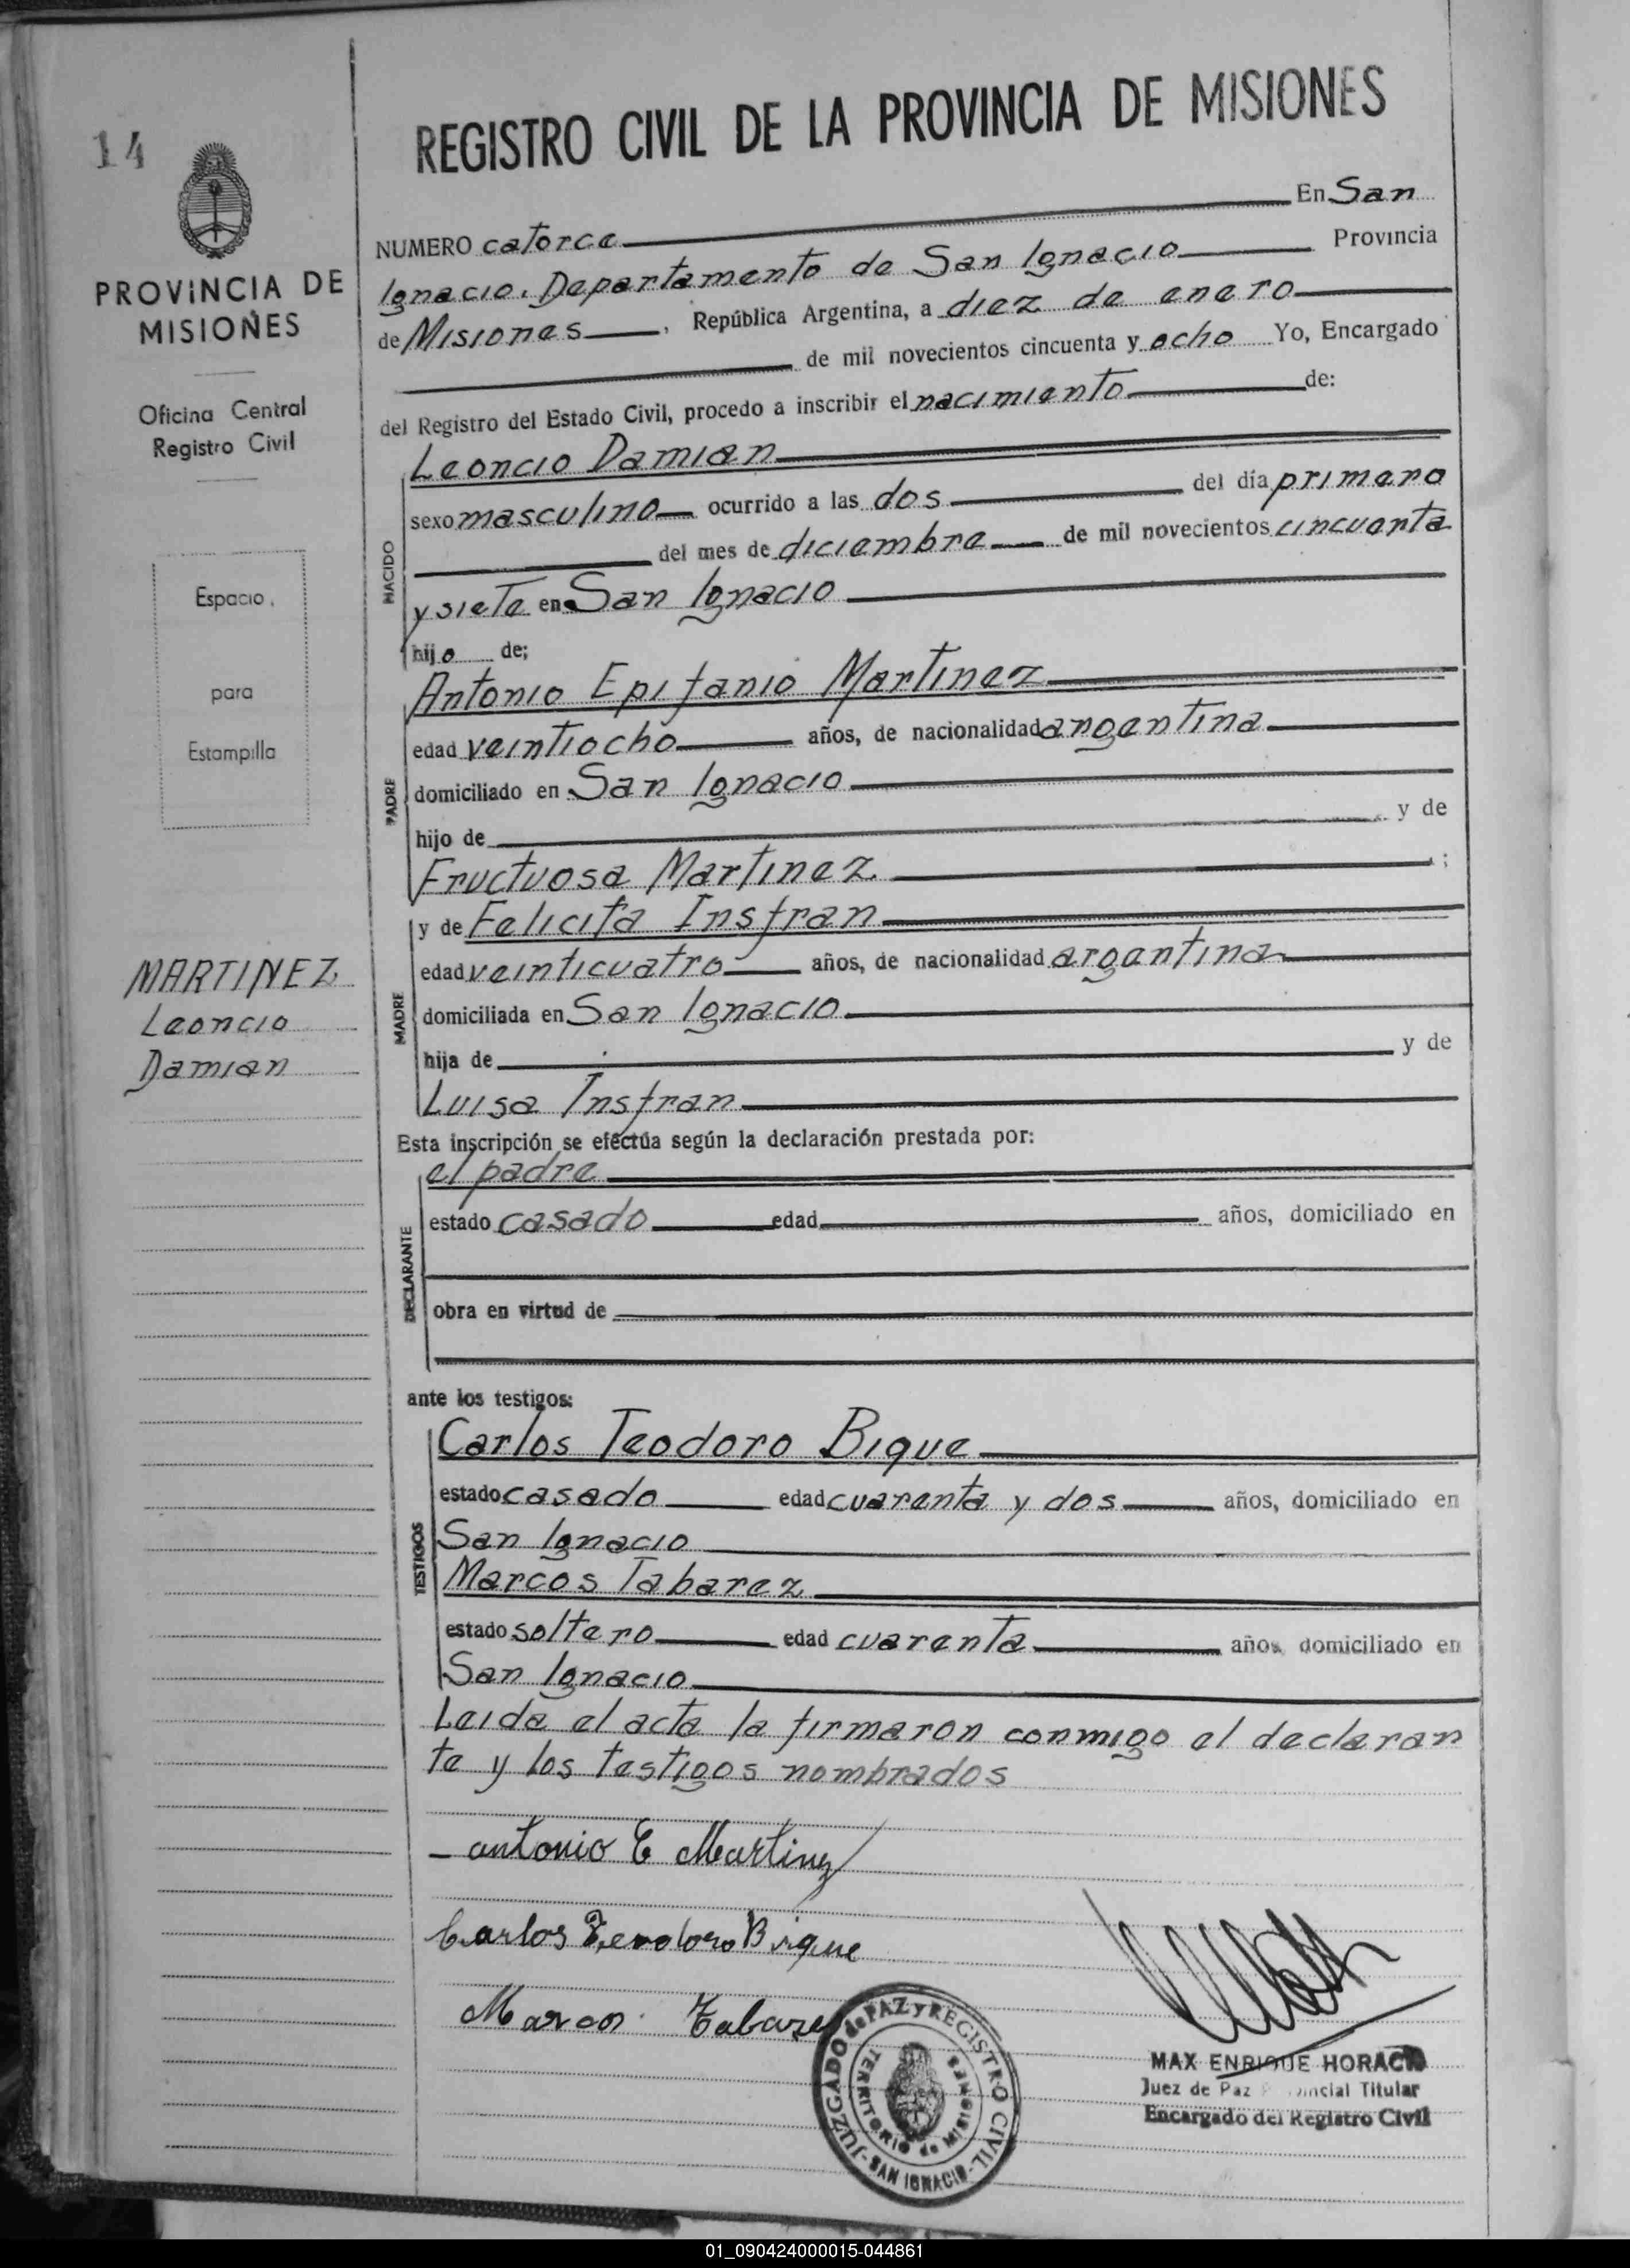 14
PROVINCIA DE
MISIONES
Oficina Central
Registro Civil
Espacio
para
Estampilla
MARTINEZ
Leoncio
Damian
REGISTRO CIVIL DE LA PROVINCIA DE MISIONES
NUMERO catorce En San
Ignacio. Departamento de San Ignacio Provincia
de Misiones, República Argentina, a diez de enero
de mil novecientos cincuenta y ocho Yo, Encargado
del Registro del Estado Civil, procedo a inscribir el nacimiento de:
NACIDO
Leoncio Damian
sexo masculino ocurrido a las dos del día primero
del mes de diciembre de mil novecientos cincuenta
y siete en San Ignacio
hijo de;
PADRE
Antonio Epifanio Martinez
edad veintiocho años, de nacionalidad argentina
domiciliado en San Ignacio
hijo de y de
Fructuosa Martinez ;
MADRE
y de Felicita Insfran
edad veinticuatro años, de nacionalidad argentina
domiciliada en San Ignacio
hija de y de
Luisa Insfran
Esta inscripción se efectúa según la declaración prestada por:
DECLARANTE
el padre
estado casado edad años, domiciliado en
obra en virtud de
ante los testigos:
TESTIGOS
Carlos Teodoro Bique
estado casado edad cuarenta y dos años, domiciliado en
San Ignacio
Marcos Tabarez
estado soltero edad cuarenta años, domiciliado en
San Ignacio
Leida el acta la firmaron conmigo el declaran
te y los testigos nombrados
antonio E Martinez
Carlos Teodoro Bique
Marcos Tabarez
JUZGADO de PAZ y REGISTRO CIVIL
TERRITORIO de MISIONES
SAN IGNACIO
MAX ENRIQUE HORACIO
Juez de Paz Provincial Titular
Encargado del Registro Civil
01_090424000015-044861